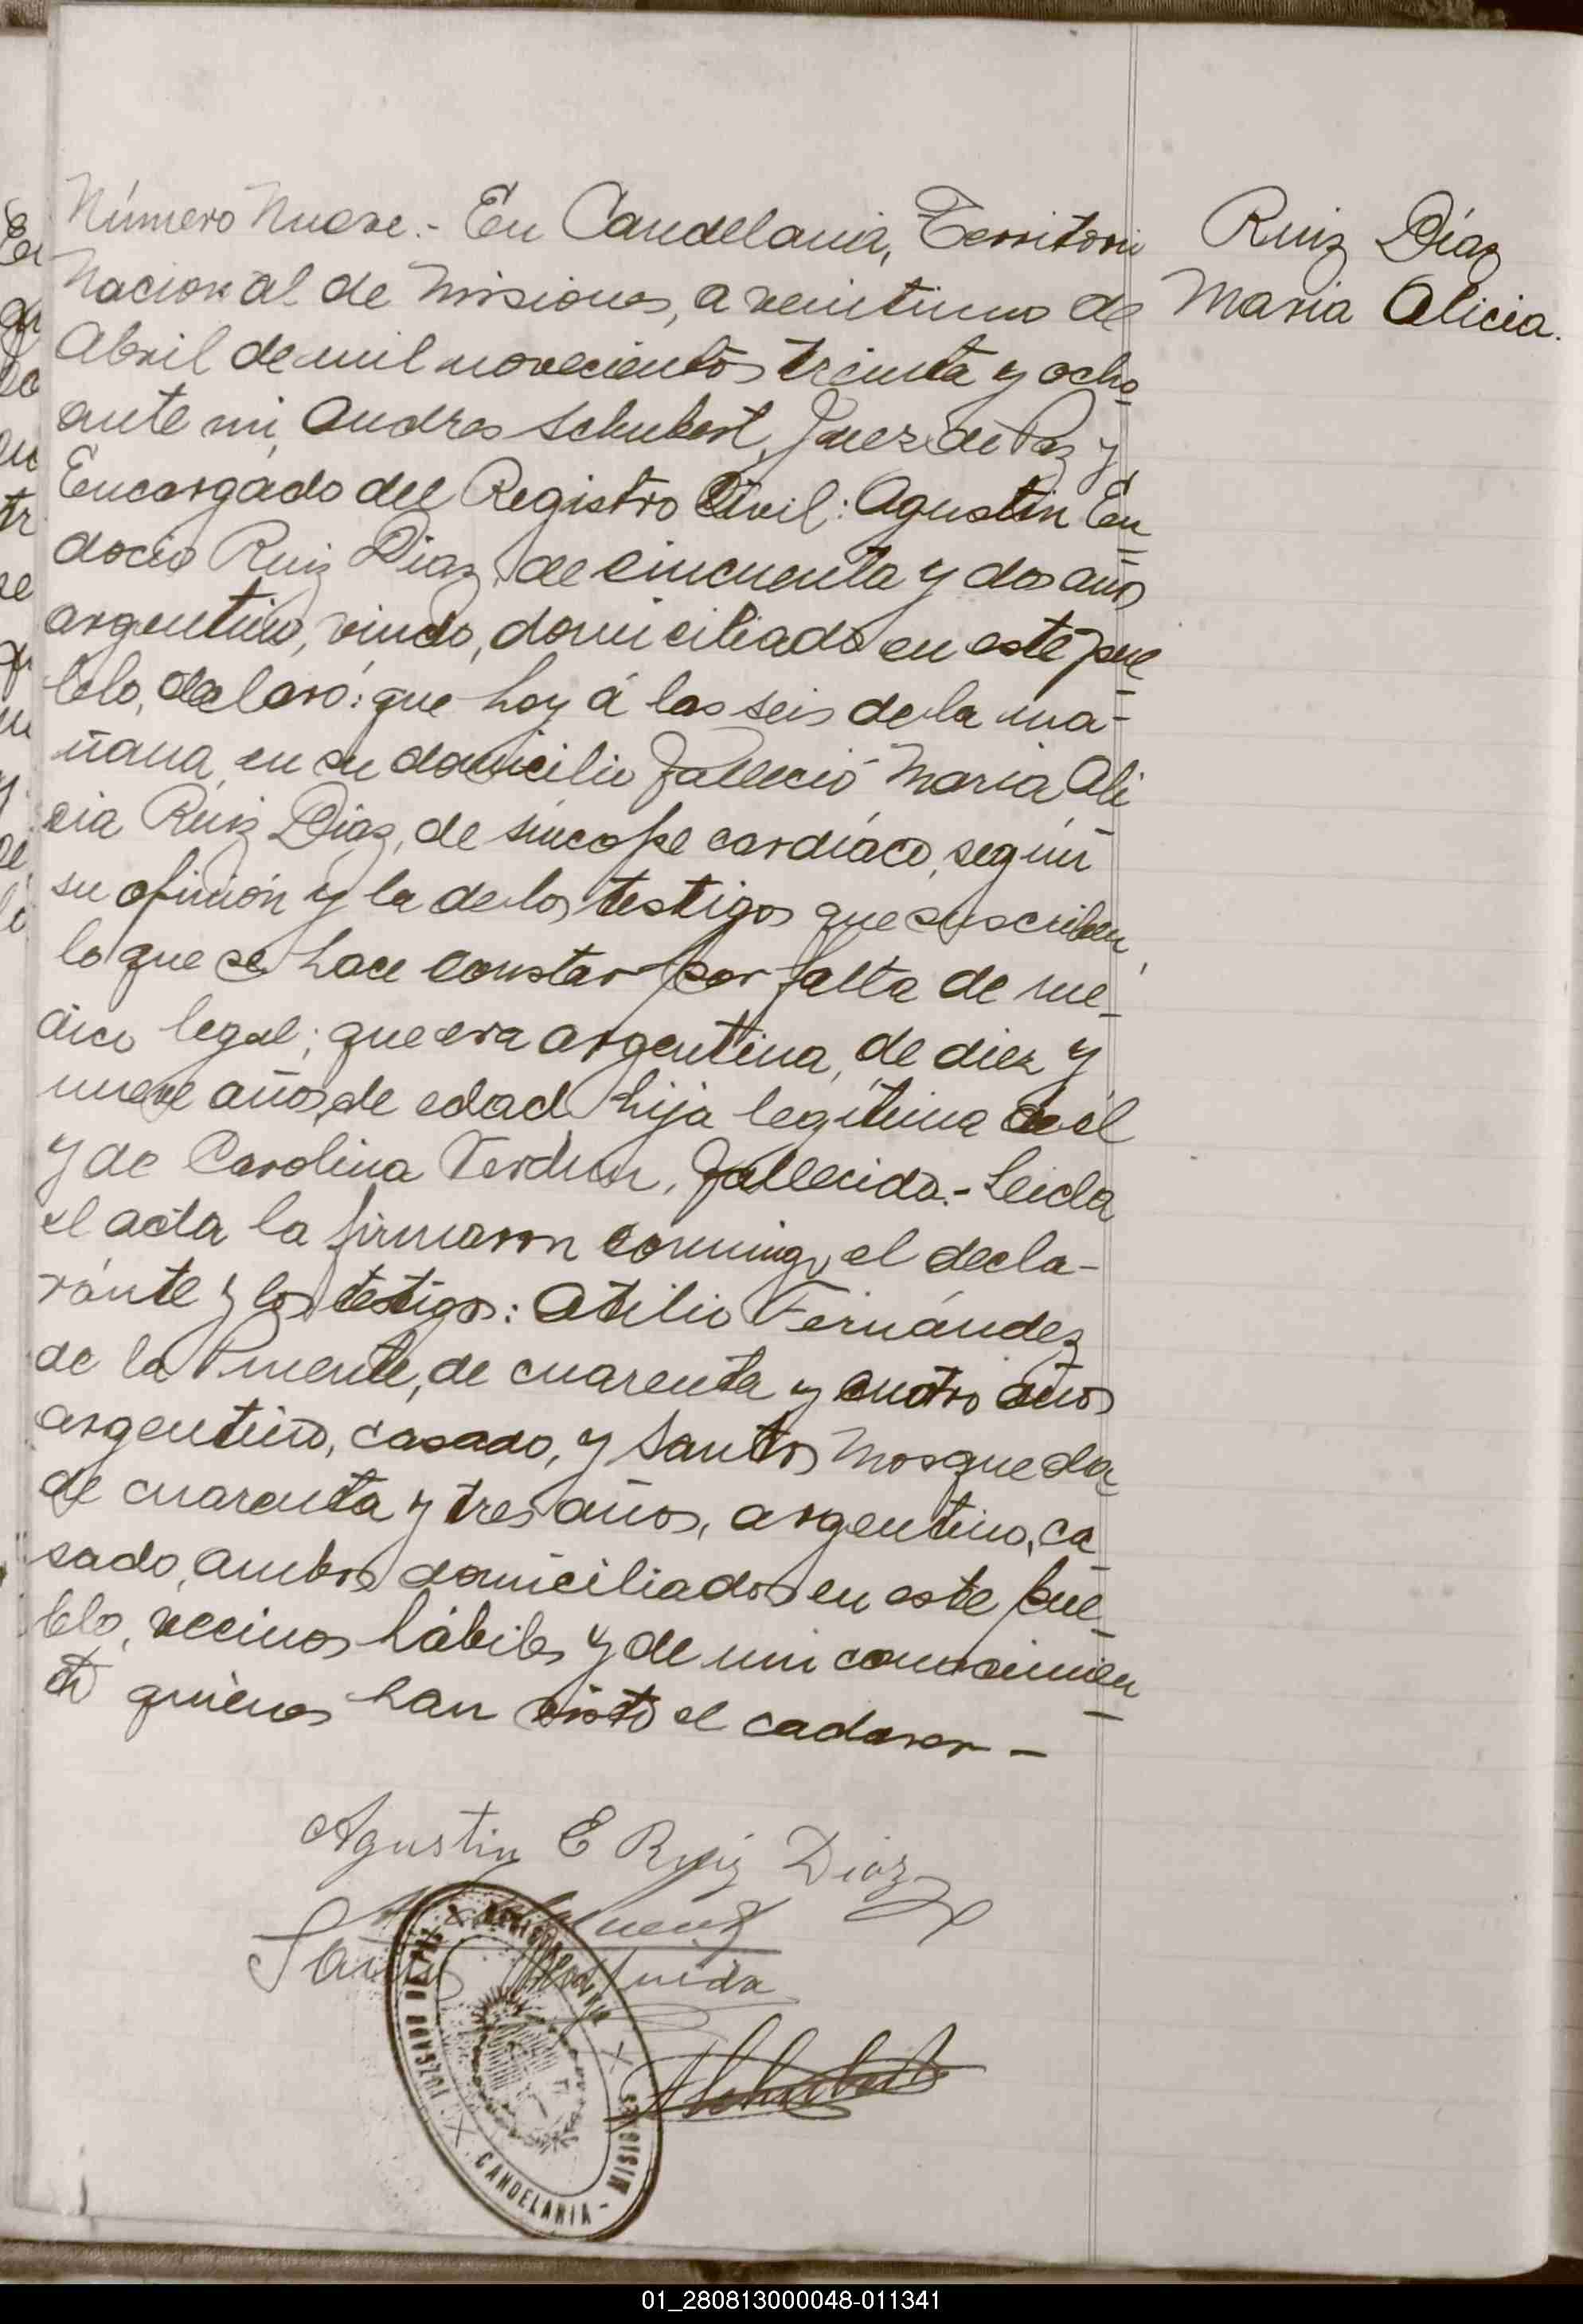 Número Nueve.- En Candelaria, Territori
Nacional de Misiones, a veintiuno de
Abril de mil novecientos treinta y ocho
ante mi, Andres Schubert, Juez de Paz y
Encargado del Registro Civil: Agustin Eu
docio Ruiz Diaz, de cincuenta y dos años
argentino, viudo, domiciliado en este pue
blo, declaró: que hoy á las seis de la ma-
ñana, en su domicilio falleció Maria Ali
cia Ruiz Diaz, de síncope cardíaco, según
su opinión y la de los testigos que suscriben,
lo que se hace constar por falta de mé-
dico legal; que era argentina, de diez y
nueve años, de edad, hija legítima de él
y de Carolina Verdun, fallecida.- Leida
el acta la firmaron conmigo, el decla-
rante y los testigos: Atilio Fernández
de la Puente, de cuarenta y cuatro años
argentino, casado, y Santos Mosqueda
de cuarenta y tres años, argentino, ca
sado, ambos domiciliados en este pue-
blo, vecinos hábiles y de mi conocimien
to quienes han visto el cadaver -
Ruiz Díaz
Maria Alicia.
Agustin E Ruiz Diaz
Santos
JUZGADO DE PAZ
CANDELARIA - MISIONES
ASchubert
01_280813000048-011341